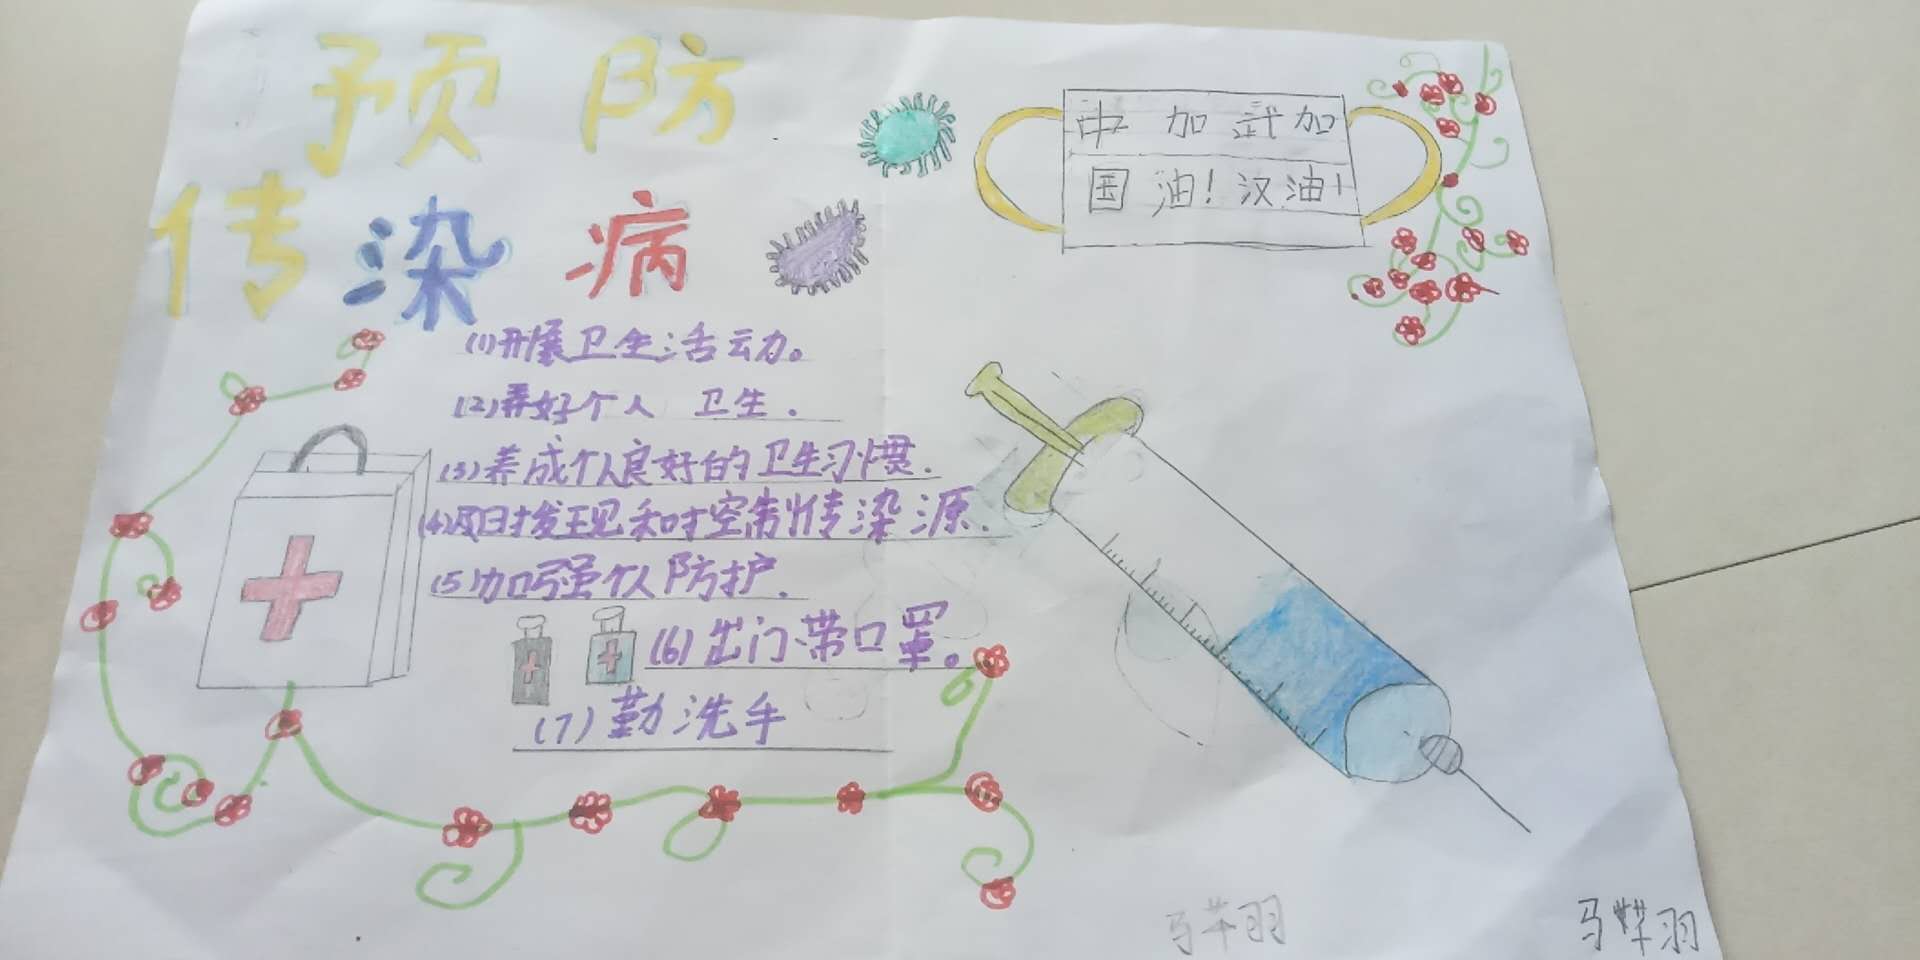 预防
传染病
中国加油！武汉加油！
(1)开展卫生活动。
(2)养好个人 卫生.
(3)养成个人良好的卫生习惯.
(4)及时发现和控制传染源.
(5)加强个人防护.
(6)出门带口罩。
(7)勤洗手